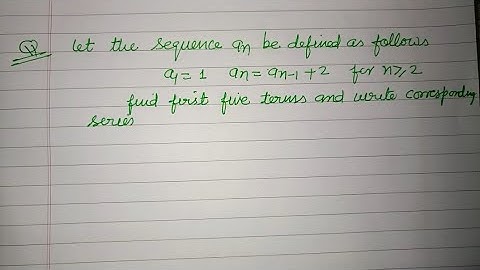 Q. Let the sequence an be defined as follows
a1 = 1 an = an-1 + 2 for n ≥ 2
find first five terms and write corresponding
series